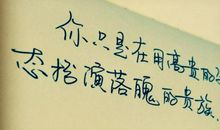 你只是在用高贵的
态 演落魄的贵族.